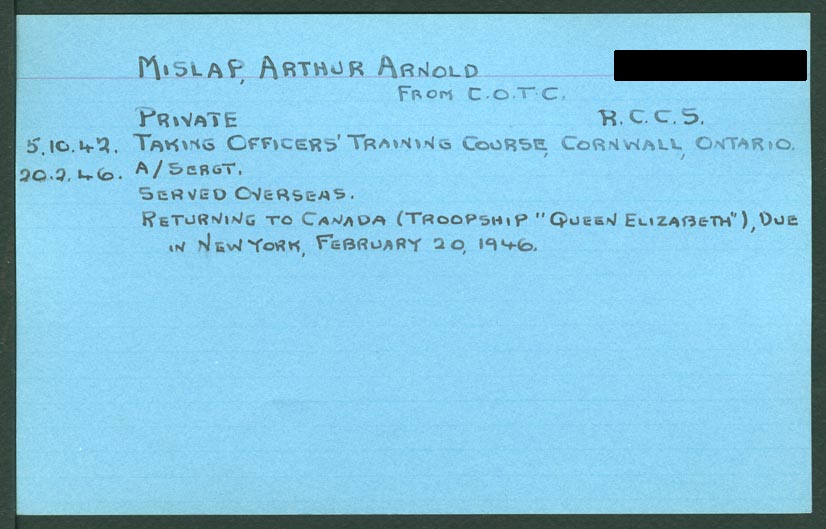 MISLAP, ARTHUR ARNOLD
FROM C.O.T.C.
PRIVATE R.C.C.S.
5.10.42. TAKING OFFICERS' TRAINING COURSE, CORNWALL, ONTARIO.
20.2.46. A/SERGT.
SERVED OVERSEAS.
RETURNING TO CANADA (TROOPSHIP "QUEEN ELIZABETH"), DUE
IN NEW YORK, FEBRUARY 20, 1946.